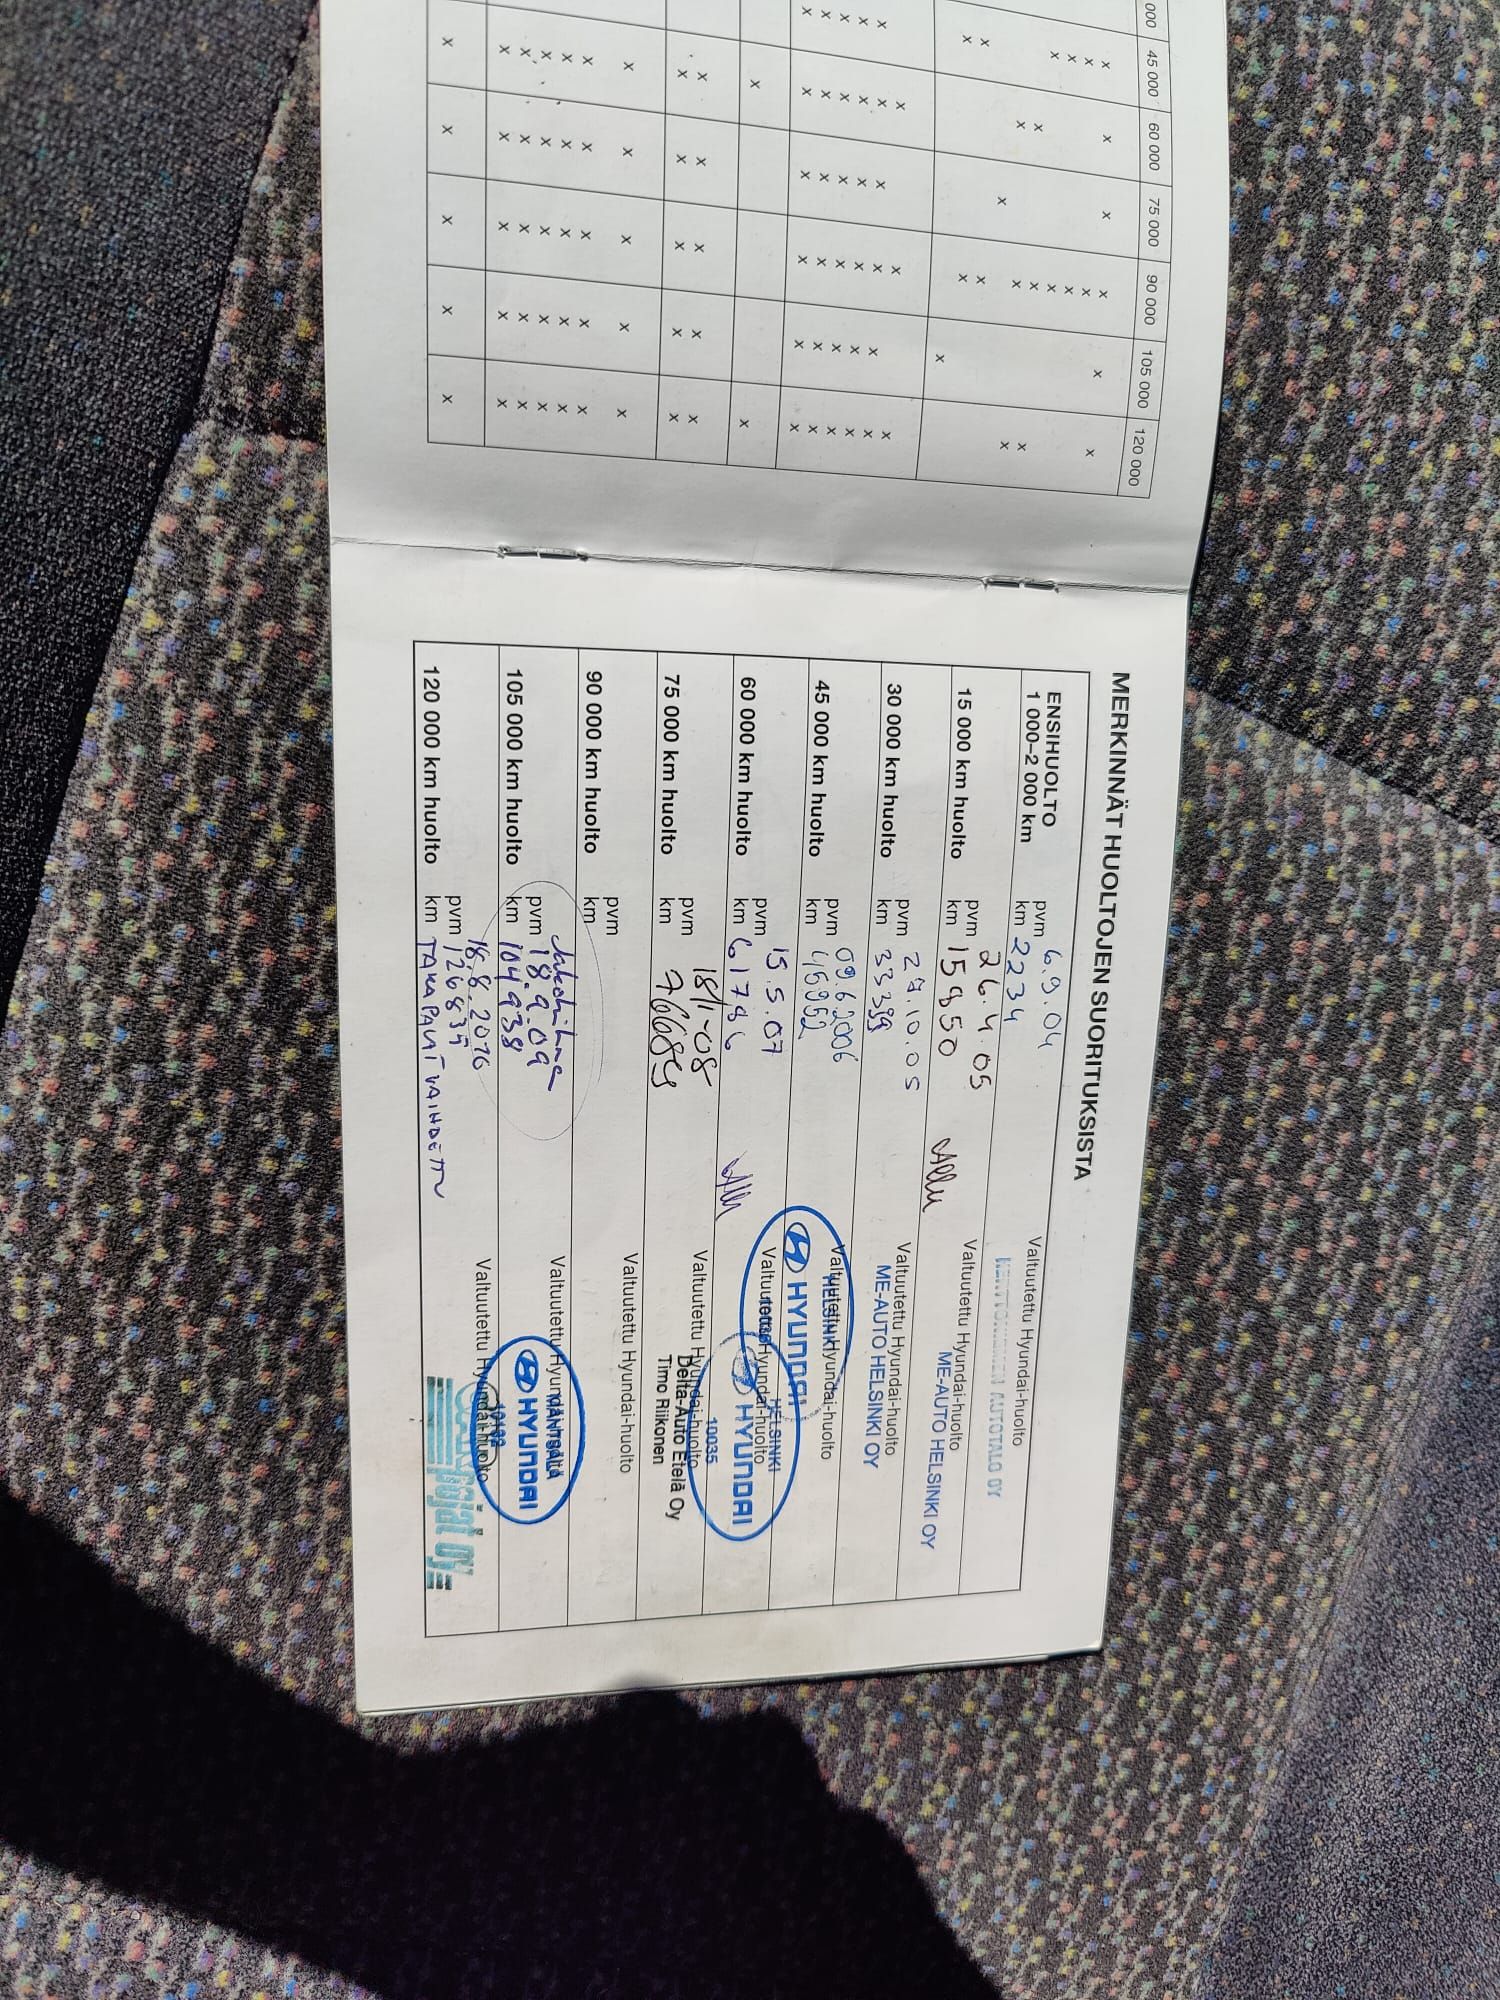 000 45 000 60 000 75 000 90 000 105 000 120 000
MERKINNÄT HUOLTOJEN SUORITUKSISTA
ENSIHUOLTO
1 000–2 000 km
pvm 6.9.04
km 2234
Valtuutettu Hyundai-huolto
AUTOTALO OY
15 000 km huolto
pvm 26.4.05
km 15850
Valtuutettu Hyundai-huolto
ME-AUTO HELSINKI OY
30 000 km huolto
pvm 27.10.05
km 33399
Valtuutettu Hyundai-huolto
ME-AUTO HELSINKI OY
45 000 km huolto
pvm 09.6.2006
km 46952
Valtuutettu Hyundai-huolto
HELSINKI
HYUNDAI
60 000 km huolto
pvm 15.5.07
km 61796
Valtuutettu Hyundai-huolto
HELSINKI
HYUNDAI
10035
75 000 km huolto
pvm 18/1-08
km 76689
Valtuutettu Hyundai-huolto
Delta-Auto Etelä Oy
Timo Riikonen
90 000 km huolto
pvm
km
Valtuutettu Hyundai-huolto
105 000 km huolto
Jakohihna
pvm 18.9.09
km 104938
Valtuutettu Hyundai-huolto
Mäntsälä
HYUNDAI
120 000 km huolto
pvm 18.8.2010
km 126839
TAKAPALAT VAIHDETTU
Valtuutettu Hyundai-huolto
OY